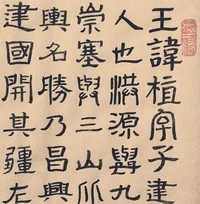 王諱植字子建
人也洪源與九
崇塞與三山
輿名勝乃昌興
建國開其疆左